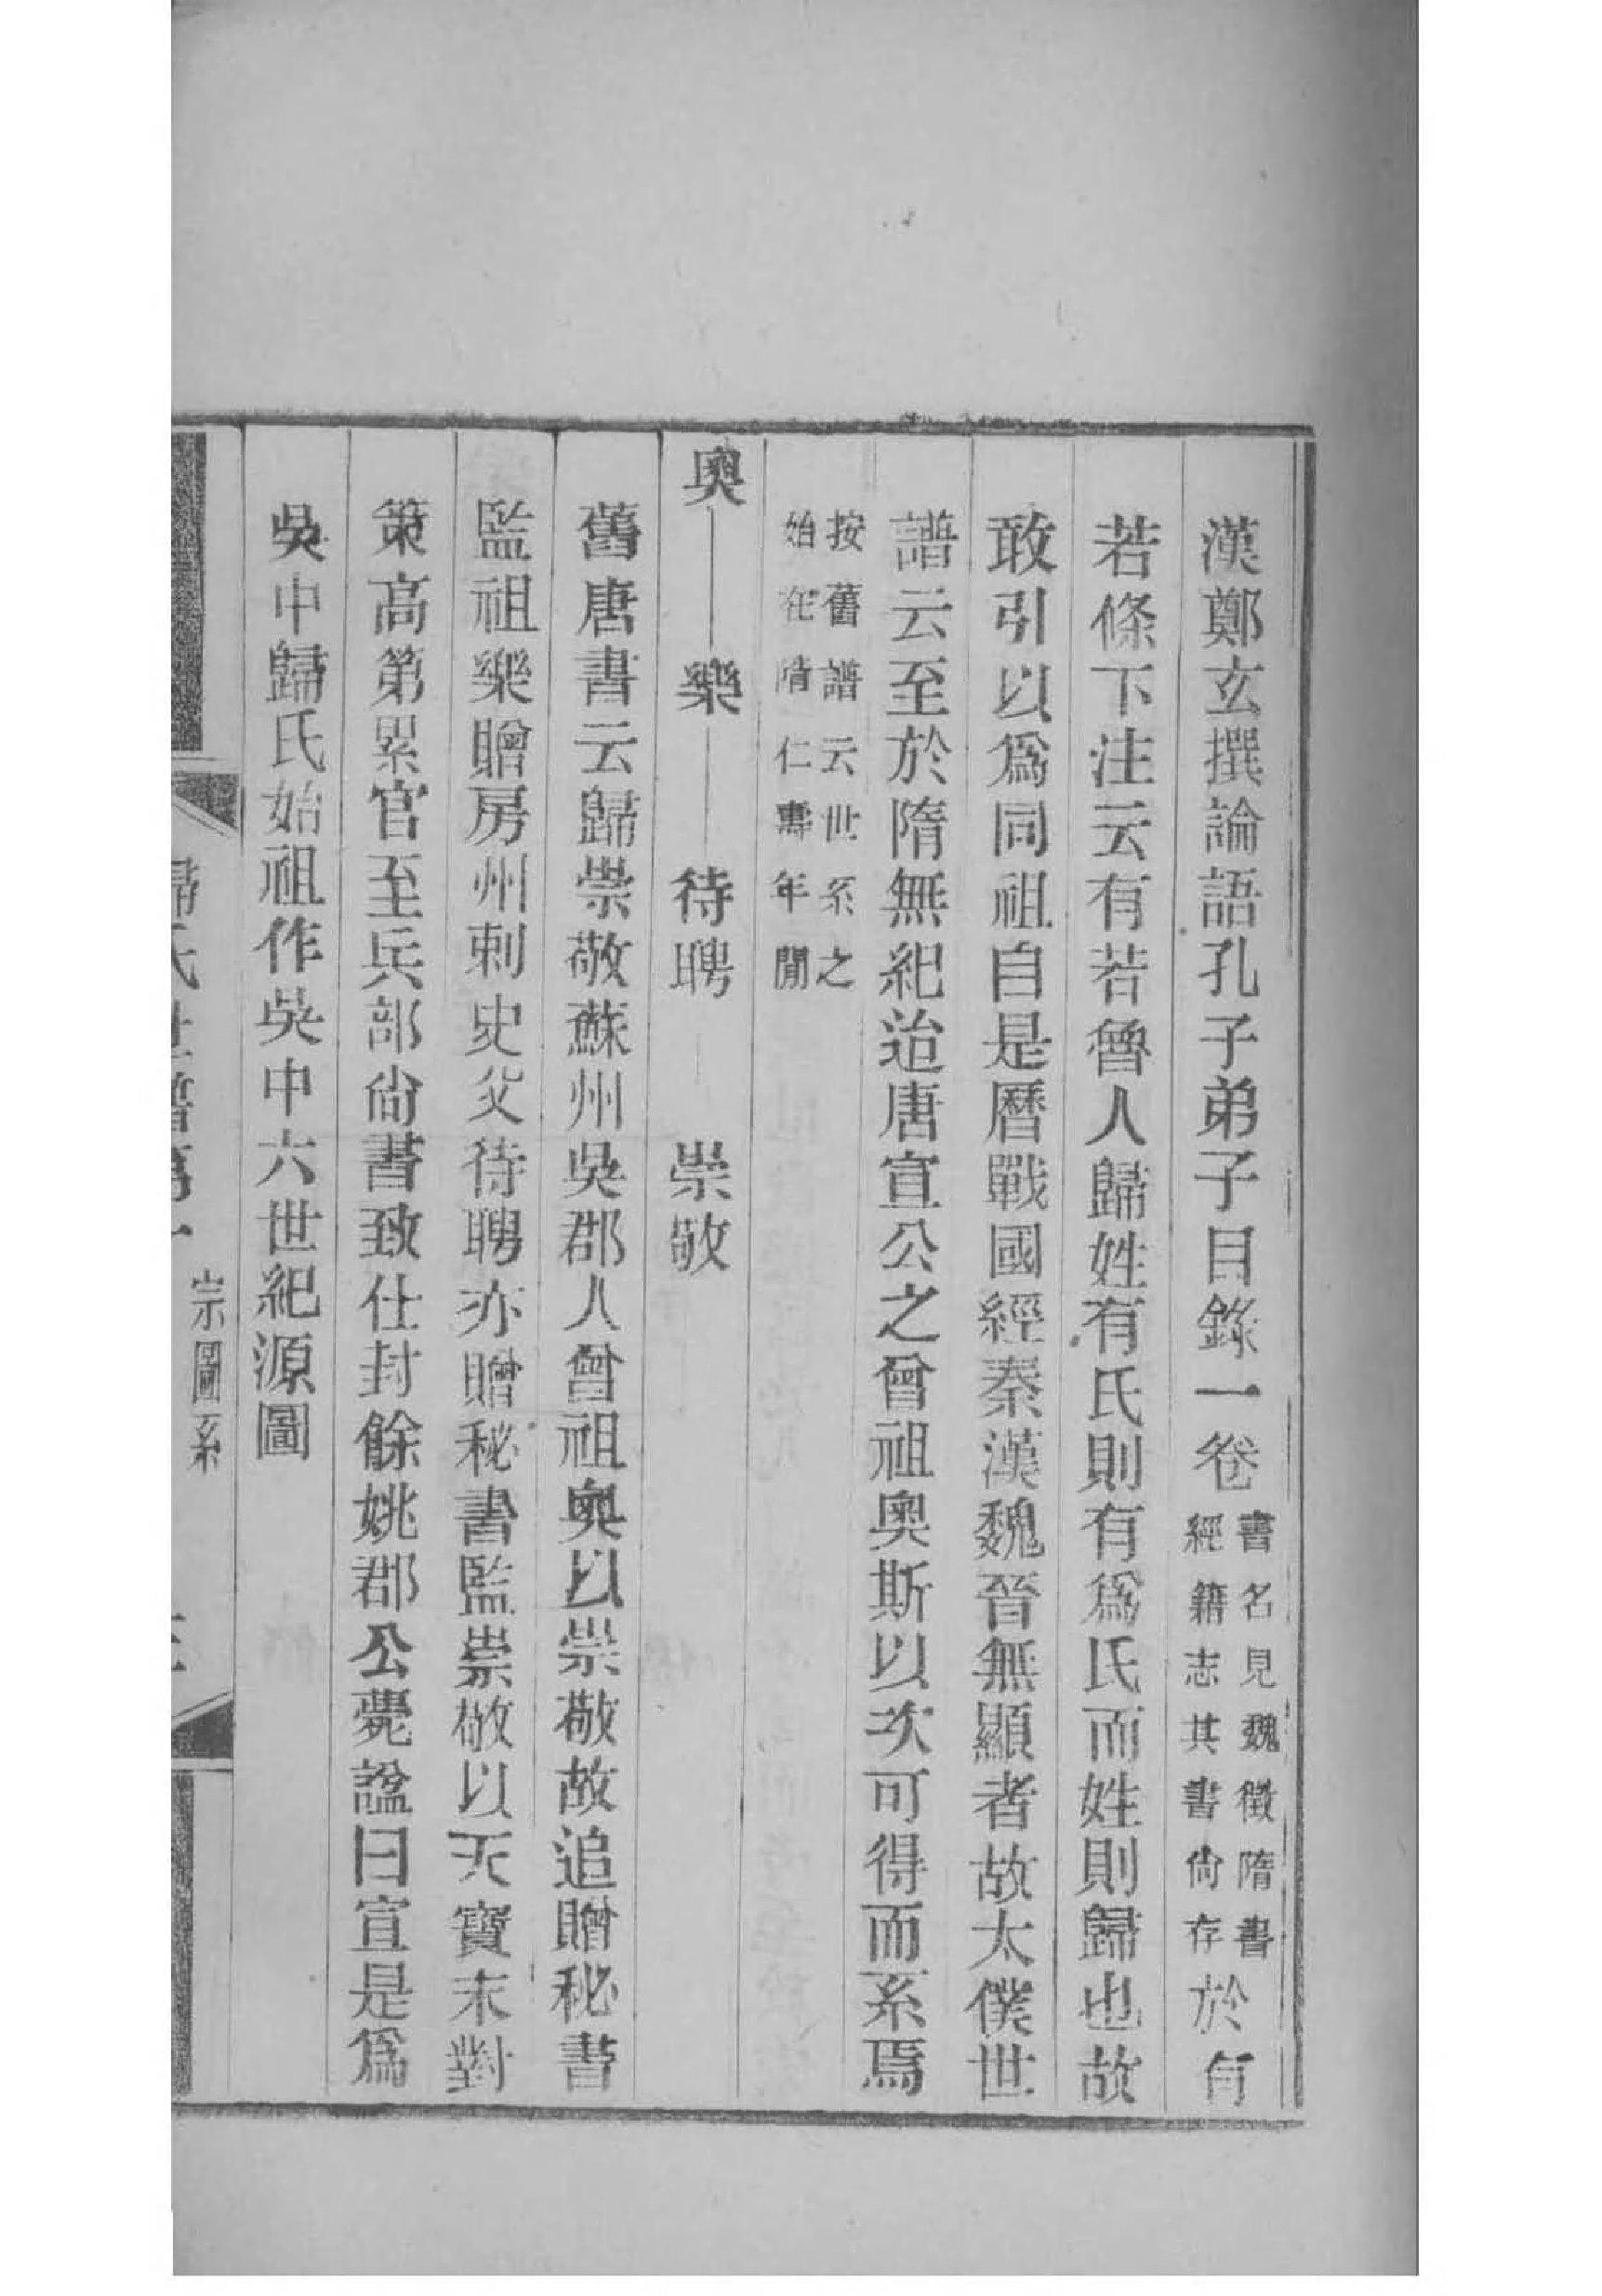 漢鄭玄撰論語孔子弟子目錄一卷書名見魏徵隋書經籍志其書尙存於有
若條下注云有若魯人歸姓有氏則有爲氏而姓則歸也故
敢引以爲同祖自是曆戰國經秦漢魏晉無顯者故太僕世
譜云至於隋無紀迨唐宣公之曾祖奧斯以次可得而系焉
按舊譜云世系之
始在隋仁壽年閒
奧 樂 待聘 崇敬
舊唐書云歸崇敬蘇州吳郡人曾祖奧以崇敬故追贈秘書
監祖樂贈房州刺史父待聘亦贈秘書監崇敬以天寶末對
策高第累官至兵部尙書致仕封餘姚郡公薨諡曰宣是爲
吳中歸氏始祖作吳中六世紀源圖
歸氏世譜第一 宗圖系